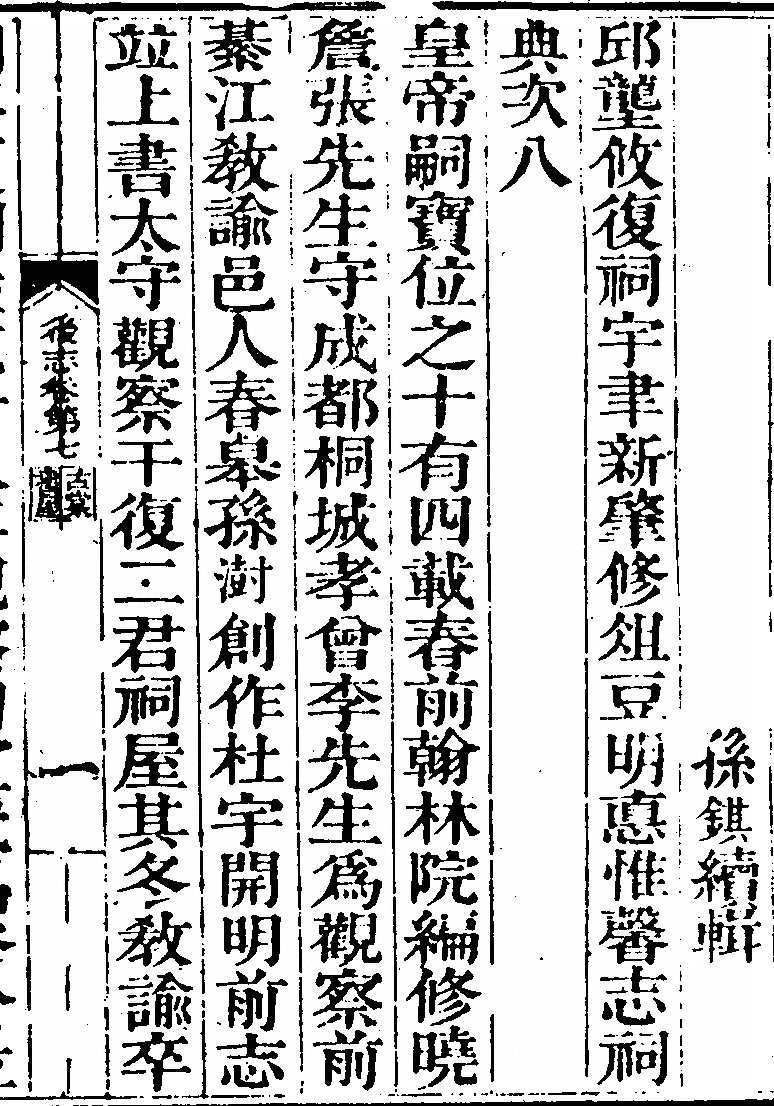 孫錤續輯
邱壟攸復祠宇聿新肇修俎豆明惪惟馨志祠
典次八
皇帝嗣寶位之十有四載春前翰林院編修曉
詹張先生守成都桐城孝曾李先生爲觀察前
綦江敎諭邑人春皋孫澍創作杜宇開明前志
竝上書太守觀察干復二君祠屋其冬敎諭卒
後志卷第七
古棠書屋
一